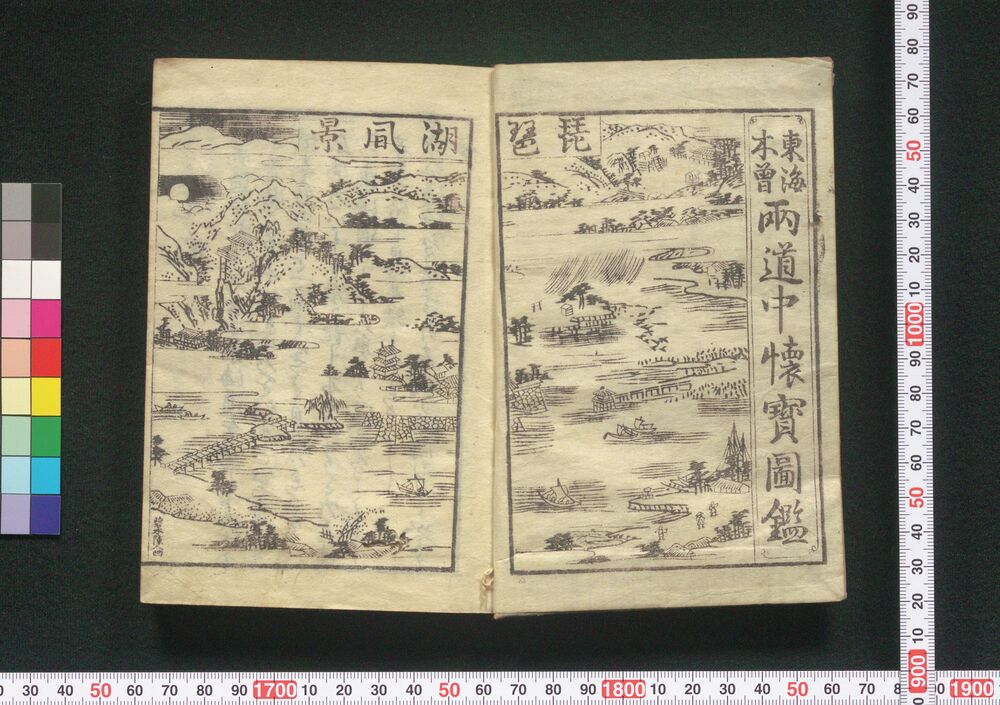 東海
木曾
兩道中懷寶圖鑑
琵琶
湖凬景
90 80 70 60 50 40 30 20 10 1000 90 80 70 60 50 40 30 20 10 900
30 40 50 60 70 80 90 1700 10 20 30 40 50 60 70 80 90 1800 10 20 30 40 50 60 70 90 1900